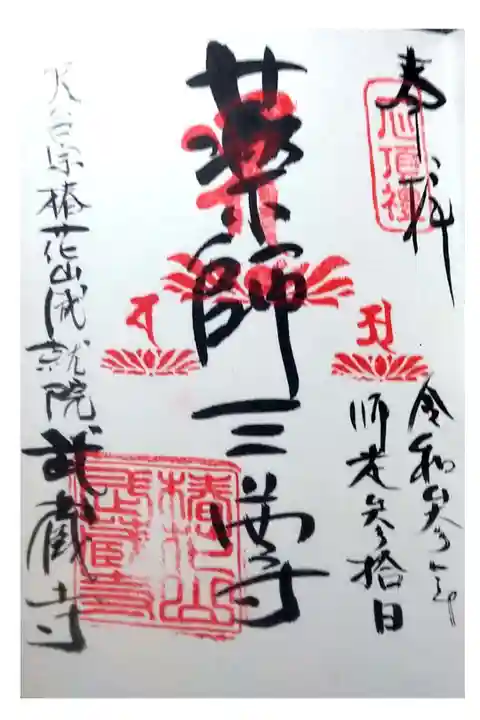 奉拝
心頂礼
令和参年
師走参拾日
薬師三尊
天台宗椿花山成就院武蔵寺
椿花山
武蔵寺